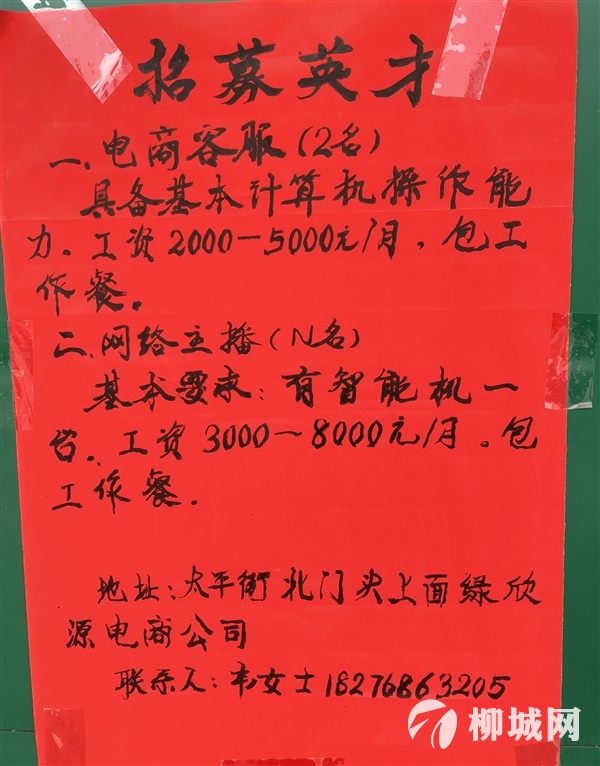 招募英才
一、电商客服(2名)
具备基本计算机操作能
力。工资2000-5000元/月，包工
作餐。
二、网络主播(N名)
基本要求：有智能机一
台。工资3000~8000元/月。包
工作餐.
地址：太平街北门尖上面绿欣
源电商公司
联系人：韦女士18276863205
柳城网